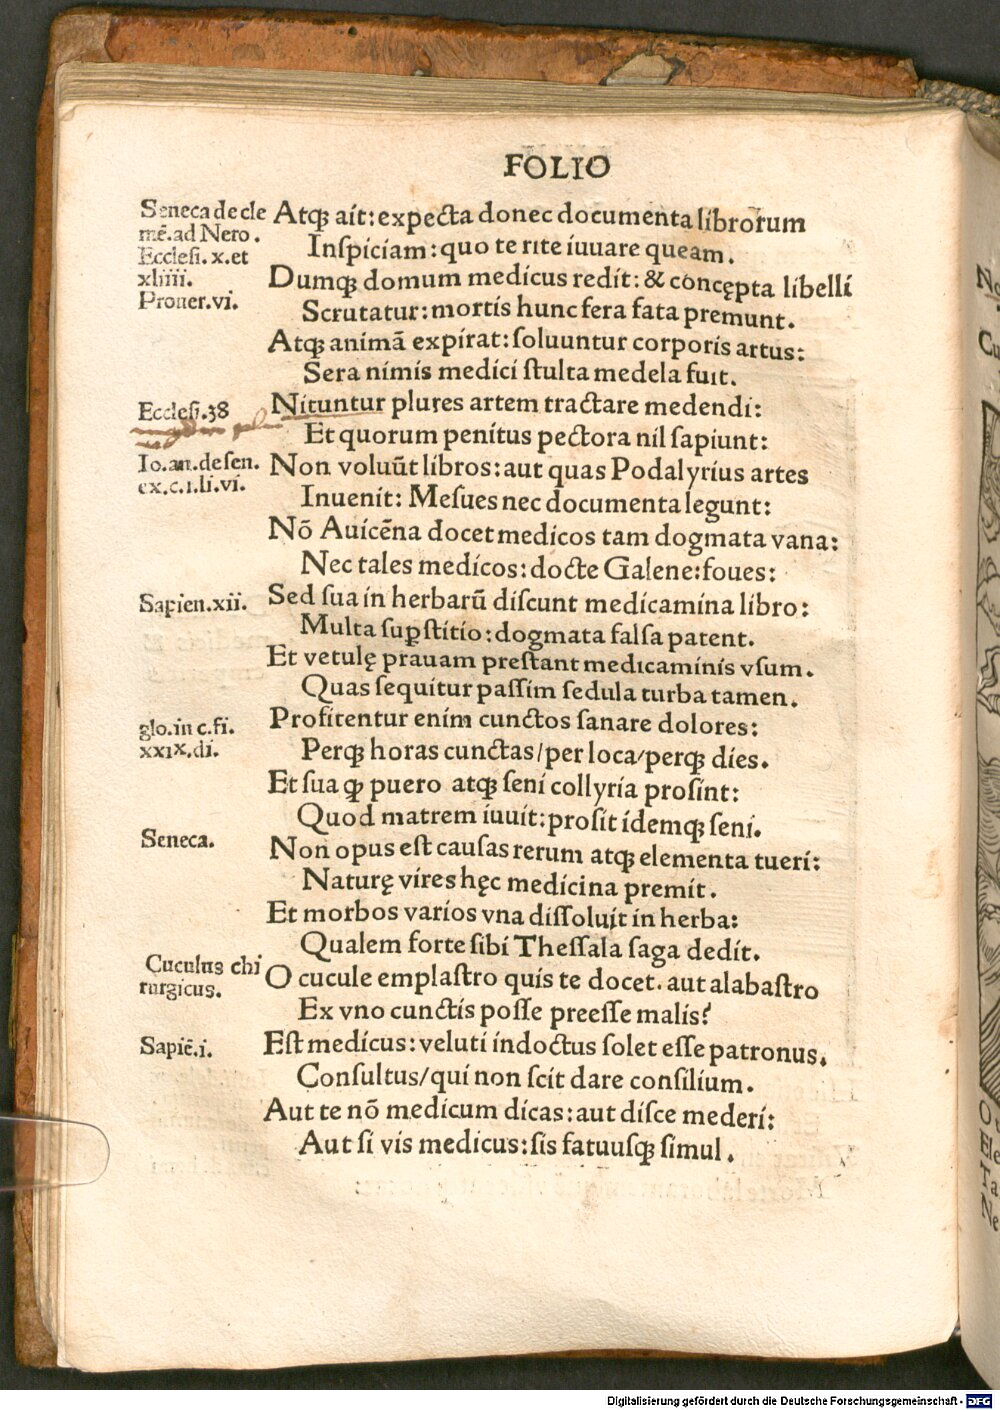 FOLIO
Seneca de cle
mē.ad Nero.
Ecclesi.x.et
xliiii.
Prouer.vi.
Atqꝫ ait: expecta donec documenta librorum
Inſpiciam: quo te rite iuuare queam.
Dumqꝫ domum medicus redit: & concępta libelli
Scrutatur: mortis hunc fera fata premunt.
Atqꝫ animā expirat: ſoluuntur corporis artus:
Sera nimis medici ſtulta medela fuit.
Eccleſi.38
Nituntur plures artem tractare medendi:
Et quorum penitus pectora nil ſapiunt:
Io.an.de ſen.
ex.c.1.li.vi.
Non voluūt libros: aut quas Podalyrius artes
Inuenit: Meſues nec documenta legunt:
Nō Auicēna docet medicos tam dogmata vana:
Nec tales medicos: docte Galene: foues:
Sapien.xii.
Sed ſua in herbarū diſcunt medicamina libro:
Multa ſuꝑſtitio: dogmata falſa patent.
Et vetulę prauam preſtant medicaminis vſum.
Quas ſequitur paſſim ſedula turba tamen.
glo.in c.fi.
xxix.di.
Profitentur enim cunctos ſanare dolores:
Perqꝫ horas cunctas/per loca/perqꝫ dies.
Et ſua ꝙ puero atqꝫ ſeni collyria proſint:
Quod matrem iuuit: proſit idemqꝫ ſeni.
Seneca.
Non opus eſt cauſas rerum atqꝫ elementa tueri:
Naturę vires hęc medicina premit.
Et morbos varios vna diſſoluit in herba:
Qualem forte ſibi Theſſala ſaga dedit.
Cuculus chi
rurgicus.
O cucule emplaſtro quis te docet. aut alabaſtro
Ex vno cunctis poſſe preeſſe malis?
Sapiē.i.
Eſt medicus: veluti indoctus ſolet eſſe patronus.
Conſultus/qui non ſcit dare conſilium.
Aut te nō medicum dicas: aut diſce mederi:
Aut ſi vis medicus: ſis fatuuſqꝫ ſimul.
No
Cu
O
Ele
Ta
Ne
Digitalisierung gefördert durch die Deutsche Forschungsgemeinschaft - DFG